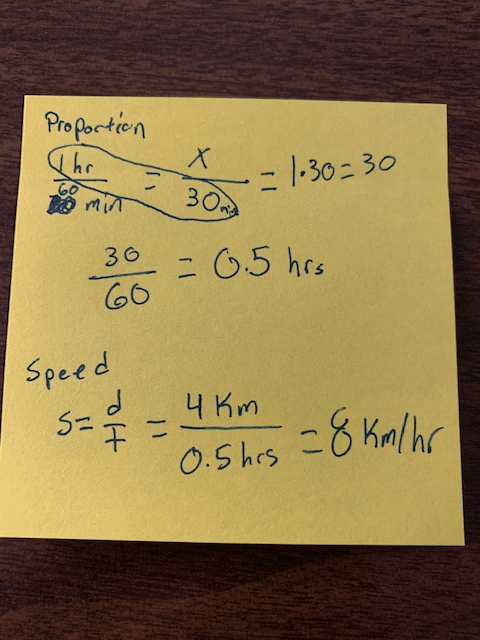 Proportion
1 hr / 60 min = X / 30 min = 1·30 = 30
30 / 60 = 0.5 hrs
Speed
S = d / T = 4 Km / 0.5 hrs = 8 Km/hr